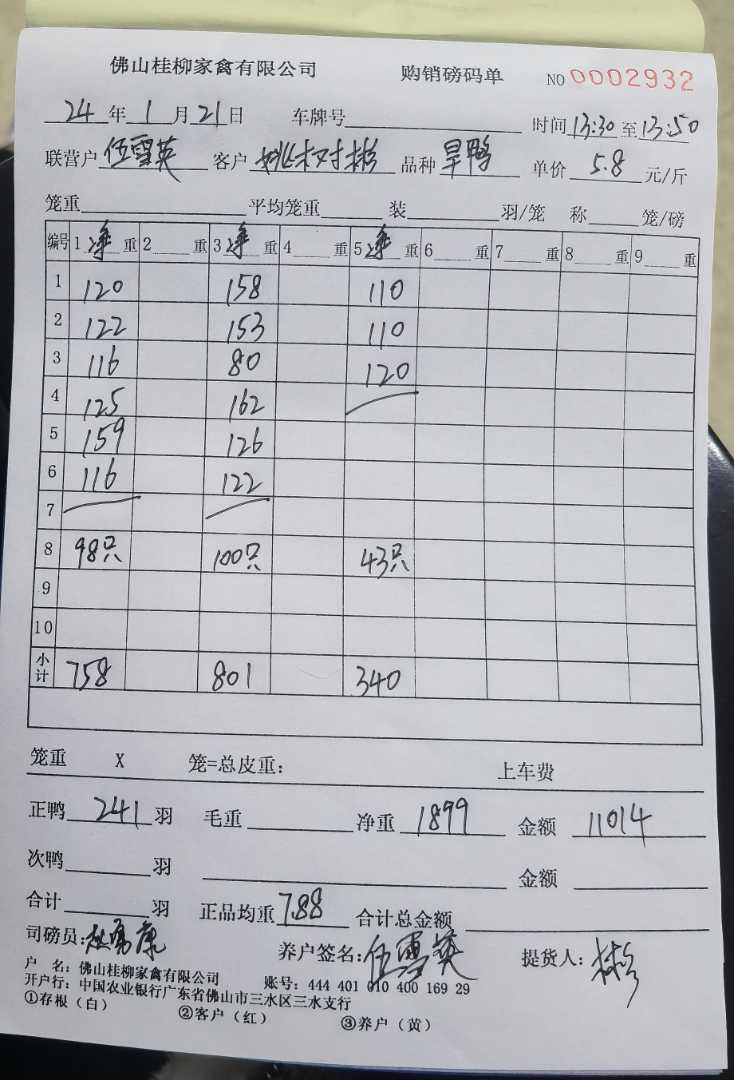 佛山桂柳家禽有限公司 购销磅码单 NO 0002932
24年1月21日 车牌号 时间13:30至13:50
联营户 伍雪英 客户 姚权彬 品种 旱鸭 单价 5.8 元/斤
笼重 平均笼重 装 羽/笼 称 笼/磅
编号 1 净 重 2 重 3 净 重 4 重 5 净 重 6 重 7 重 8 重 9 重
1 120 158 110
2 122 153 110
3 116 80 120
4 125 162
5 159 126
6 116 122
7
8 98只 100只 43只
9
10
小计 758 801 340
笼重 X 笼=总皮重: 上车费
正鸭 241 羽 毛重 净重 1899 金额 11014
次鸭 羽 金额
合计 羽 正品均重 7.88 合计总金额
司磅员: 养户签名: 伍雪英 提货人: 彬
户 名: 佛山桂柳家禽有限公司 账号: 444 401 010 400 169 29
开户行: 中国农业银行广东省佛山市三水区三水支行
①存根（白） ②客户（红） ③养户（黄）